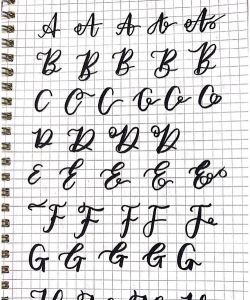 A A A A A
B B B B B
C C C C C C
D D D D
E E E E E
F F F F F
G G G G G